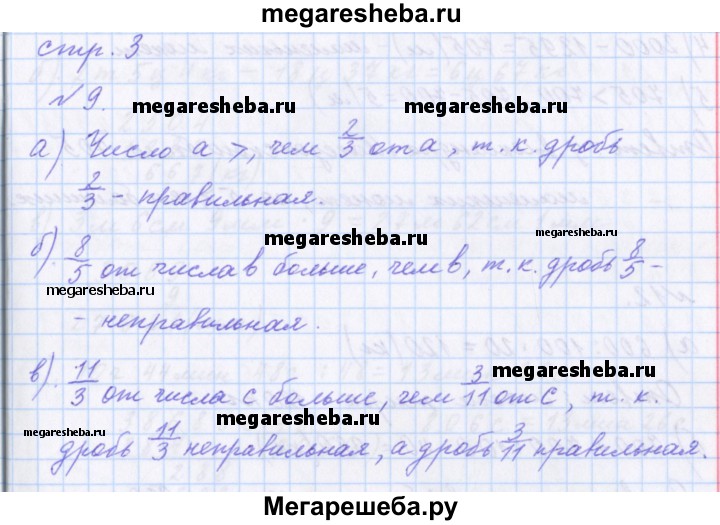 megaresheba.ru
стр. 3
№ 9.
megaresheba.ru megaresheba.ru
а) Число а >, чем 2/3 от а, т. к. дробь
2/3 - правильная.
megaresheba.ru megaresheba.ru
б). 8/5 от числа в больше, чем в, т. к. дробь 8/5 -
megaresheba.ru
- неправильная.
megaresheba.ru
в). 11/3 от числа с больше, чем 3/11 от с, т. к.
megaresheba.ru megaresheba.ru
megaresheba.ru
дробь 11/3 неправильная, а дробь 3/11 правильная.
Мегарешеба.ру